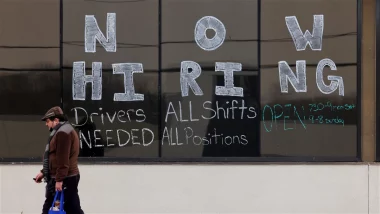 NOW
HIRING
Drivers ALL Shifts
NEEDED ALL Positions
OPEN